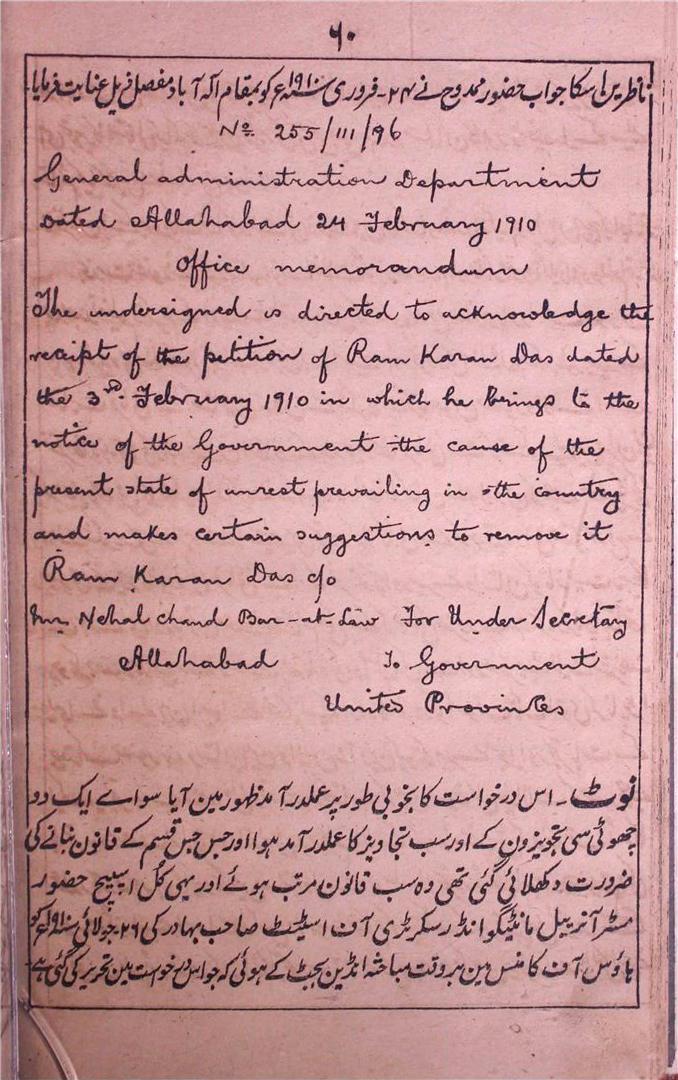 ۶۰
ناظرین اسکا جواب حضور ممدوح نے ۲۴۔ فروری سنہ ۱۹۱۰ء کو بمقام الہ آباد مفصل ذیل عنایت فرمایا
No. 255/III/96
General administration Department
Dated Allahabad 24 February 1910
Office memorandum
The undersigned is directed to acknowledge the
receipt of the petition of Ram Karan Das dated
the 3rd. February 1910 in which he brings to the
notice of the Government the cause of the
present state of unrest prevailing in the country
and makes certain suggestions to remove it
Ram Karan Das c/o
Mr. Nehal chand Bar-at-Law For Under Secretary
Allahabad To Government
United Provinces
نوٹ۔ اس درخواست کا بخوبی طور پر عملدرآمد ظہور مین آیا سواے ایک دو
چھوٹی سی تجویزون کے اور سب تجاویز کا عملدرآمد ہوا اور جس جس قسم کے قانون بنانے کی
ضرورت دکھلائی گئی تھی وہ سب قانون مرتب ہوئے اور یہی کل اسپیچ حضور
مسٹر آنریبل مانٹیگو انڈر سکرٹری آف اسٹیٹ صاحب بہادر کی ۲۶۔ جولائی سنہ ۱۹۱۰ء کو
ہاؤس آف کامنس مین بروقت مباحثہ انڈین بجٹ کے ہوئی کہ جو اس درخواست مین تحریر کی گئی ہے